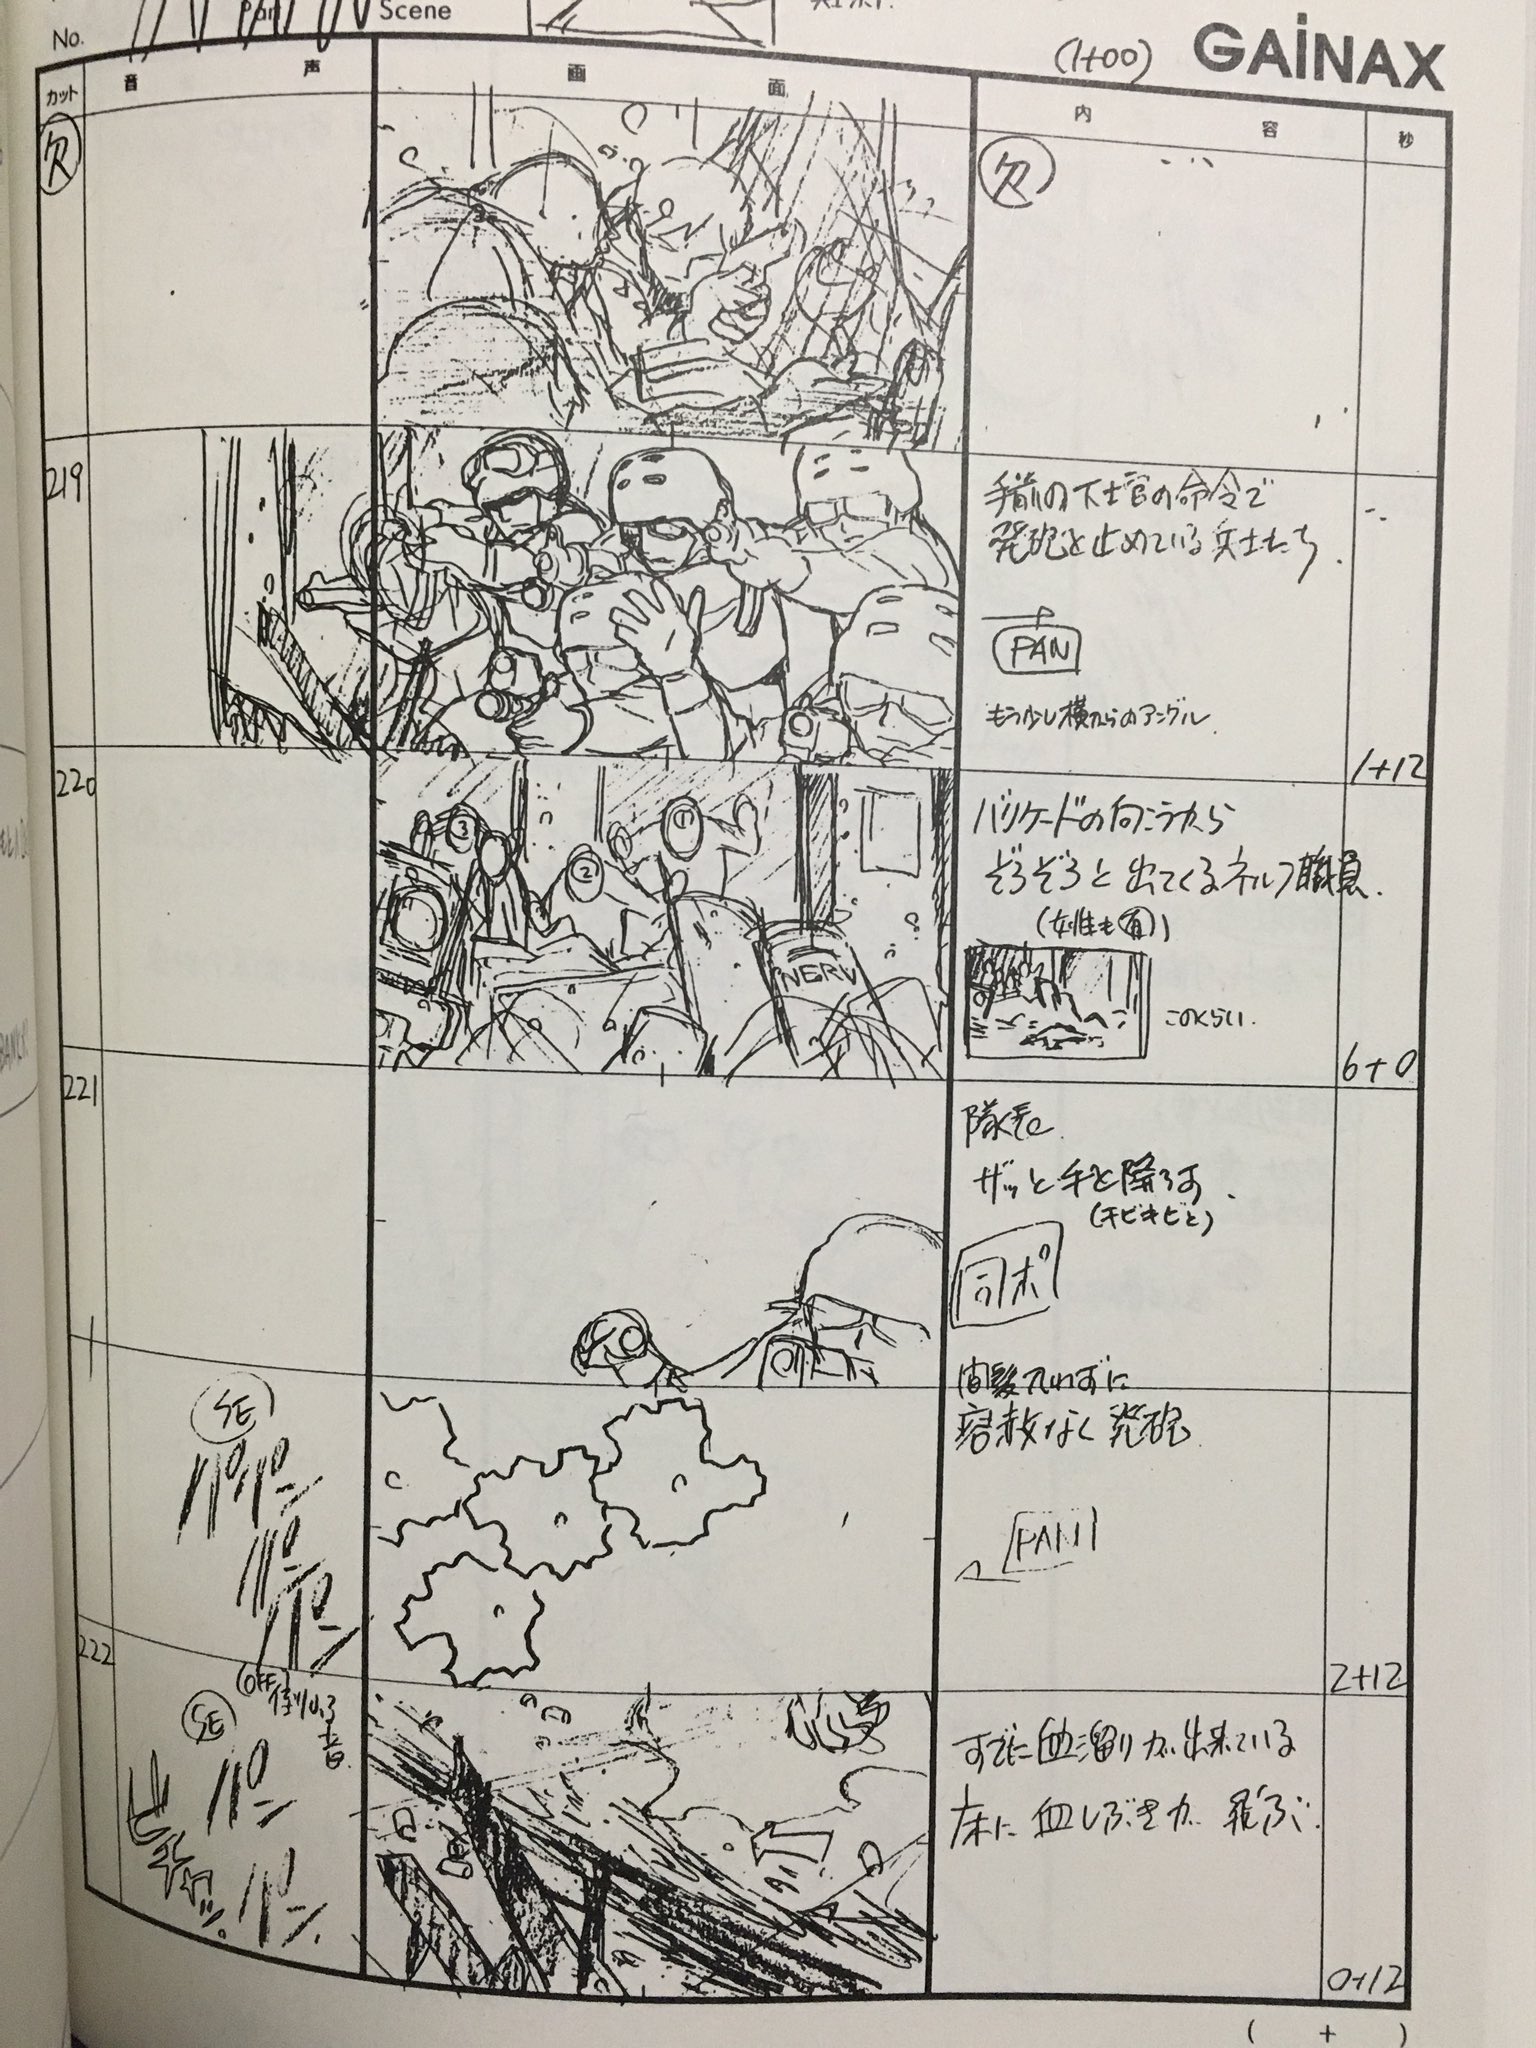 No.
Part
Scene
(1+00)
GAiNAX
カット
音 声
画 面
内 容
秒
欠
欠
219
手前の下士官の命令で
発砲を止めている兵士たち.
PAN
もう少し横からのアングル
1+12
220
③
②
①
NERV
バリケードの向こうから
ぞろぞろと出てくるネルフ職員.
(女性も有)
このくらい.
6+0
221
隊長
ザッと手を降ろす.
(キビキビと)
同ポ
間髪入れずに
容赦なく発砲
SE
パパン
パン
パン
PAN
2+12
222
(OFF)
倒れる音
SE
パン
パン
ビチャッ.
すでに血溜りが出来ている
床に血しぶきが飛ぶ.
0+12
( + )